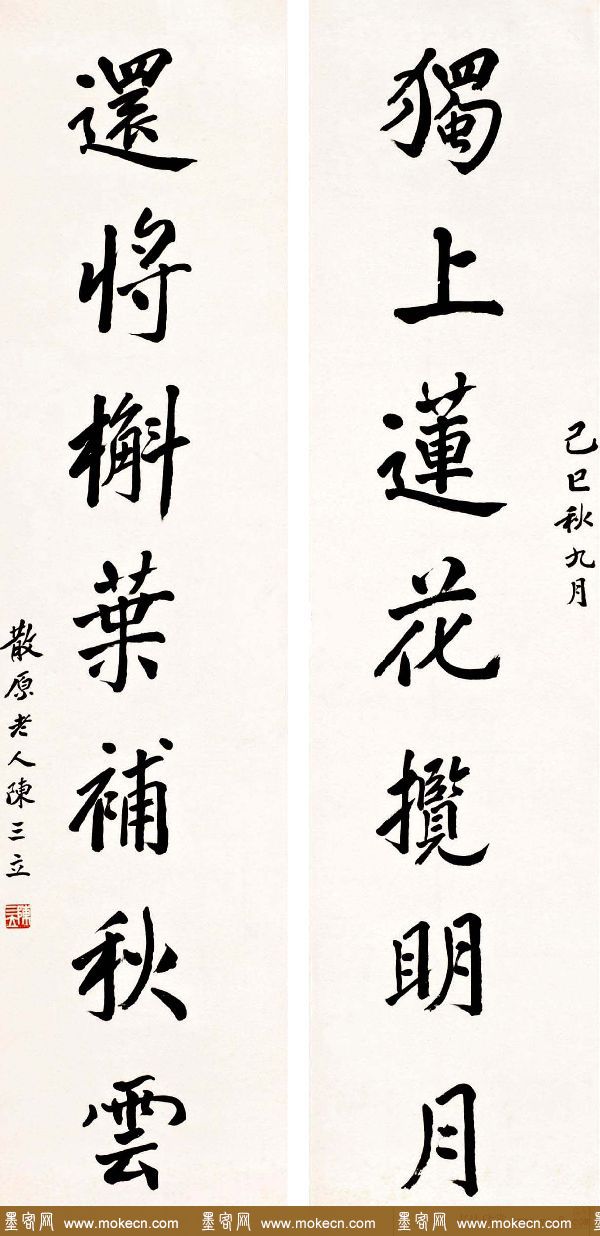 己巳秋九月
獨上蓮花攬明月
還將槲葉補秋雲
散原老人陳三立
陳三立
墨客网 www.mokecn.com 墨客网 www.mokecn.com 墨客网 www.mokecn.com